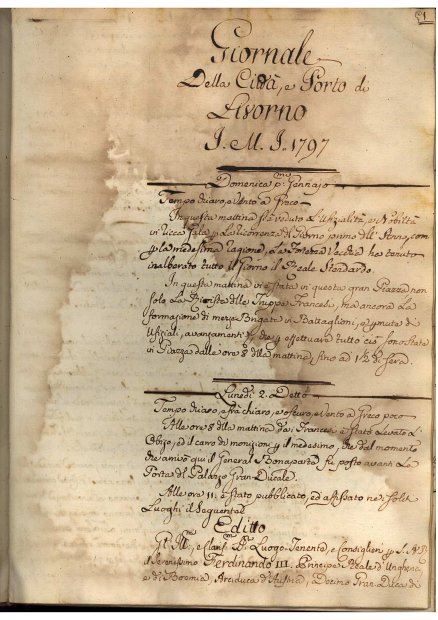 Giornale
Della Città, e Porto di
Livorno
J. M. J. 1797
Domenica p.mo Gennajo
Tempo chiaro, e Vento a Greco
In questa mattina s'è veduto l'Ufizialità, e Nobiltà
in ricca Gala p la ricorrenza del Giorno primo dell'Anno, com
p la medesima ragione, la Fortezza Vecchia ha tenuto
inalborato tutto il giorno il Reale Stendardo.
In questa mattina vi è stata in questa gran Piazza non
solo la delle Truppe Francesi, ma ancora la
formazione di mezze Brigate in Battaglioni, e
Ufiziali, avanzamenti effettuare tutto ciò sono stati
in Piazza dalle ore 8 della mattina, fino ad 1/2 di sera.
Lunedì 2. Detto
Tempo chiaro, e fra chiaro, e oscuro, e Vento a Greco poco
Alle ore 8 della mattina da' Francesi è stato levato l'
Obizzo, ed il carro di munizioni p il medesimo, che dal momento
che arrivò qui il General Bonaparte fu posto avanti la
Porta del Palazzo Gran-Ducale.
Alle ore 11. è stato pubblicato, ed affissato ne' soliti
Luoghi il seguente
Editto
Gl' Ill.mi, e Clar.mi Luogo-Tenente, e Consiglieri p S. A. R.
il Serenissimo Ferdinando III. Principe Reale d'Ungheria
e di Boemia, Arciduca d'Austria, Decimo Gran-Duca di